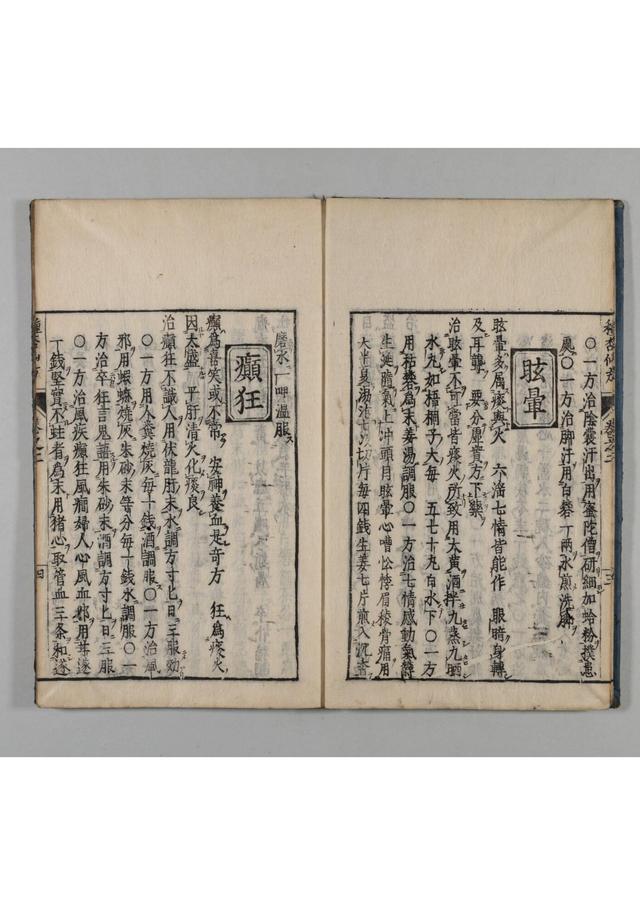 〇一方治陰囊汗出用蜜陀僧研細加蛤粉撲患
處〇一方治脚汗用白礬一兩水煎洗脚
眩暈
眩暈多属痰與火 六淫七情皆能作 眼暗身轉
及耳聾 要分虛實方下藥
治眩暈不可當皆痰火所致用大黃酒拌九蒸九晒
水丸如梧桐子大每 五七十丸白水下〇一方
用 為末姜湯調服〇一方治七情感動氣欝
生涎隨氣上冲頭目眩暈心嘈忪悸眉稜骨痛用
大半夏湯 片每四錢生姜七片煎入沉香
磨水一呷溫服
癲狂
癲為喜笑或不常 安神養血是奇方 狂為痰火
因太盛 平肝清火化痰良
治癲狂不識人用伏龍肝末水調方寸匕日三服効
〇一方用人糞燒灰每十錢酒調服〇一方治風
邪用蝦蟆燒灰朱砂末等分每十錢水調服〇一
方治卒狂言鬼語用朱砂末酒調方寸匕日三服
〇一方治風疾癲狂風癇婦人心風血邪用甘遂
一錢堅實不蛀者為末用猪心取管血三条和遂
種杏仙方
卷之二
四